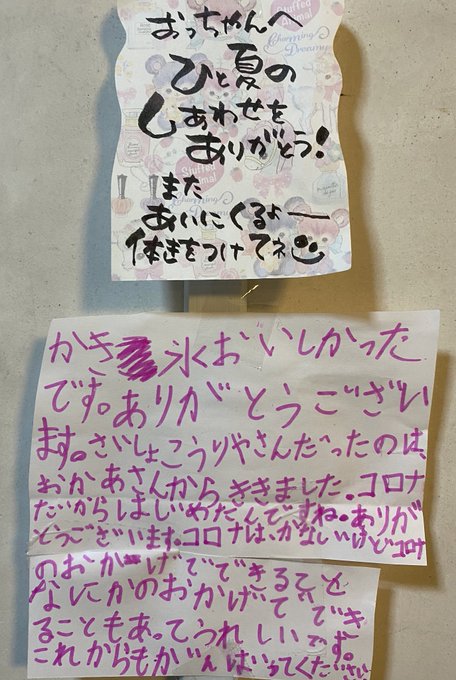 おっちゃんへ
ひと夏の
しあわせを
ありがとう!
また
あいにくるよー
体きをつけてネ
かき氷おいしかった
です。ありがとうござい
ます。さいしょこうりやさんだったのは、
おかあさんからききました。コロナ
だからはじめたんですね。ありが
とうございます。コロナは、かなしいけどコロナ
のおかげでできること
なにかのおかげででき
ることもあってうれしいです。
これからもがんばってください
Stuffed
Animal
Charming
Dreamy
Stuffed
Animal